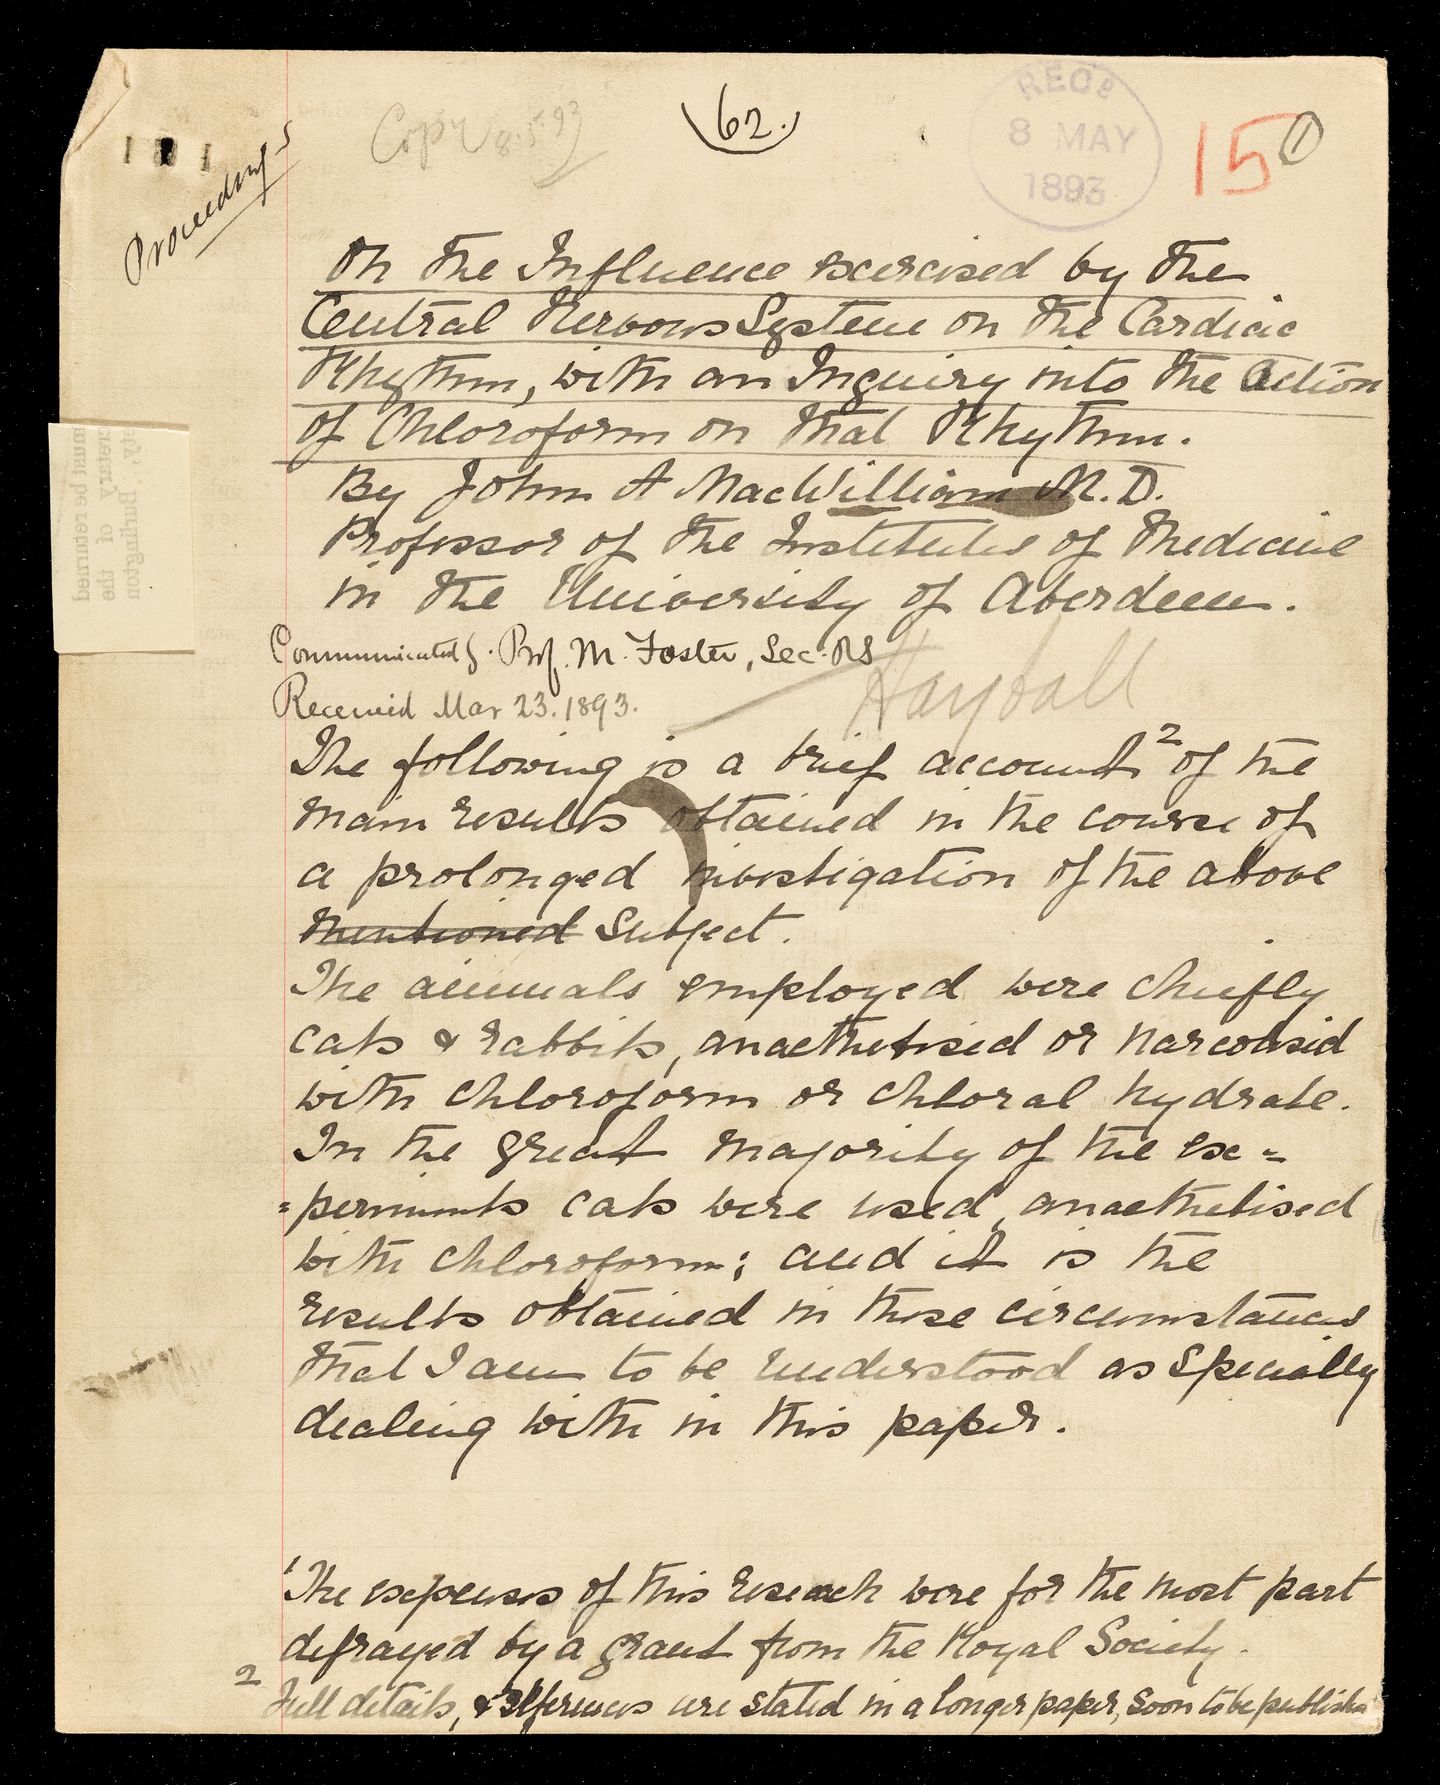 Copy 8.5.93
(62.)
RECD
8 MAY
1893
15
1
Proceedings
On the Influence exercised by the
Central Nervous System on the Cardiac
Rhythm, with an Inquiry into the Action
of Chloroform on that Rhythm.
By John A MacWilliam M.D.
Professor of the Institutes of Medicine
in the University of Aberdeen.
Communicated by Prof. M. Foster, Sec. RS
Received Mar 23. 1893.
The following is a brief account² of the
main results obtained in the course of
a prolonged investigation of the above
mentioned subject.
The animals employed were chiefly
cats & rabbits, anaethetised or narcotisid
with chloroform or chloral hydrate.
In the great majority of the ex=
=periments cats were used, anaethetised
with chloroform; and it is the
results obtained in these circumstances
that I am to be understood as specially
dealing with in this paper.
¹The expenses of this research were for the most part
defrayed by a grant from the Royal Society.
² Full details, & references are stated in a longer paper, soon to be published
ty, Burlington
cretary of the
must be returned